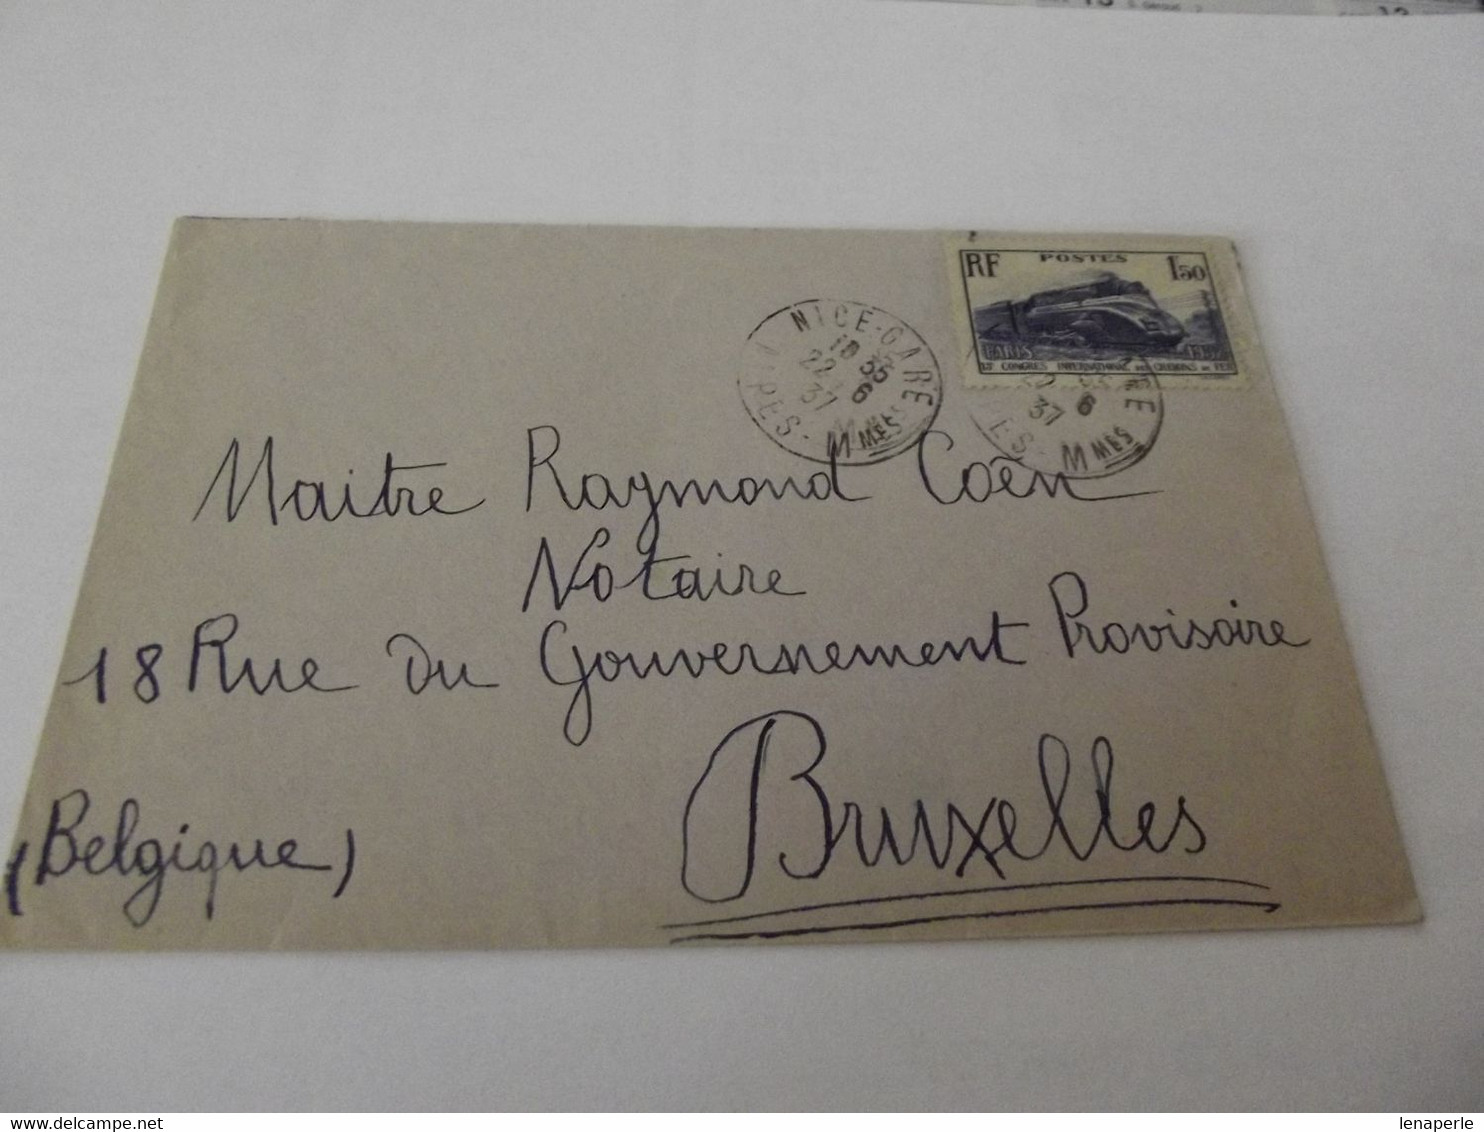 RF POSTES 1,50
PARIS 1937
13E CONGRES INTERNATIONAL DES CHEMINS DE FER
NICE-GARE
18 35
22 6
37
PES-MMES
37 6
ES-MMES
Maitre Raymond Coën
Notaire
18 Rue du Gouvernement Provisoire
Bruxelles
(Belgique)
lenaperle